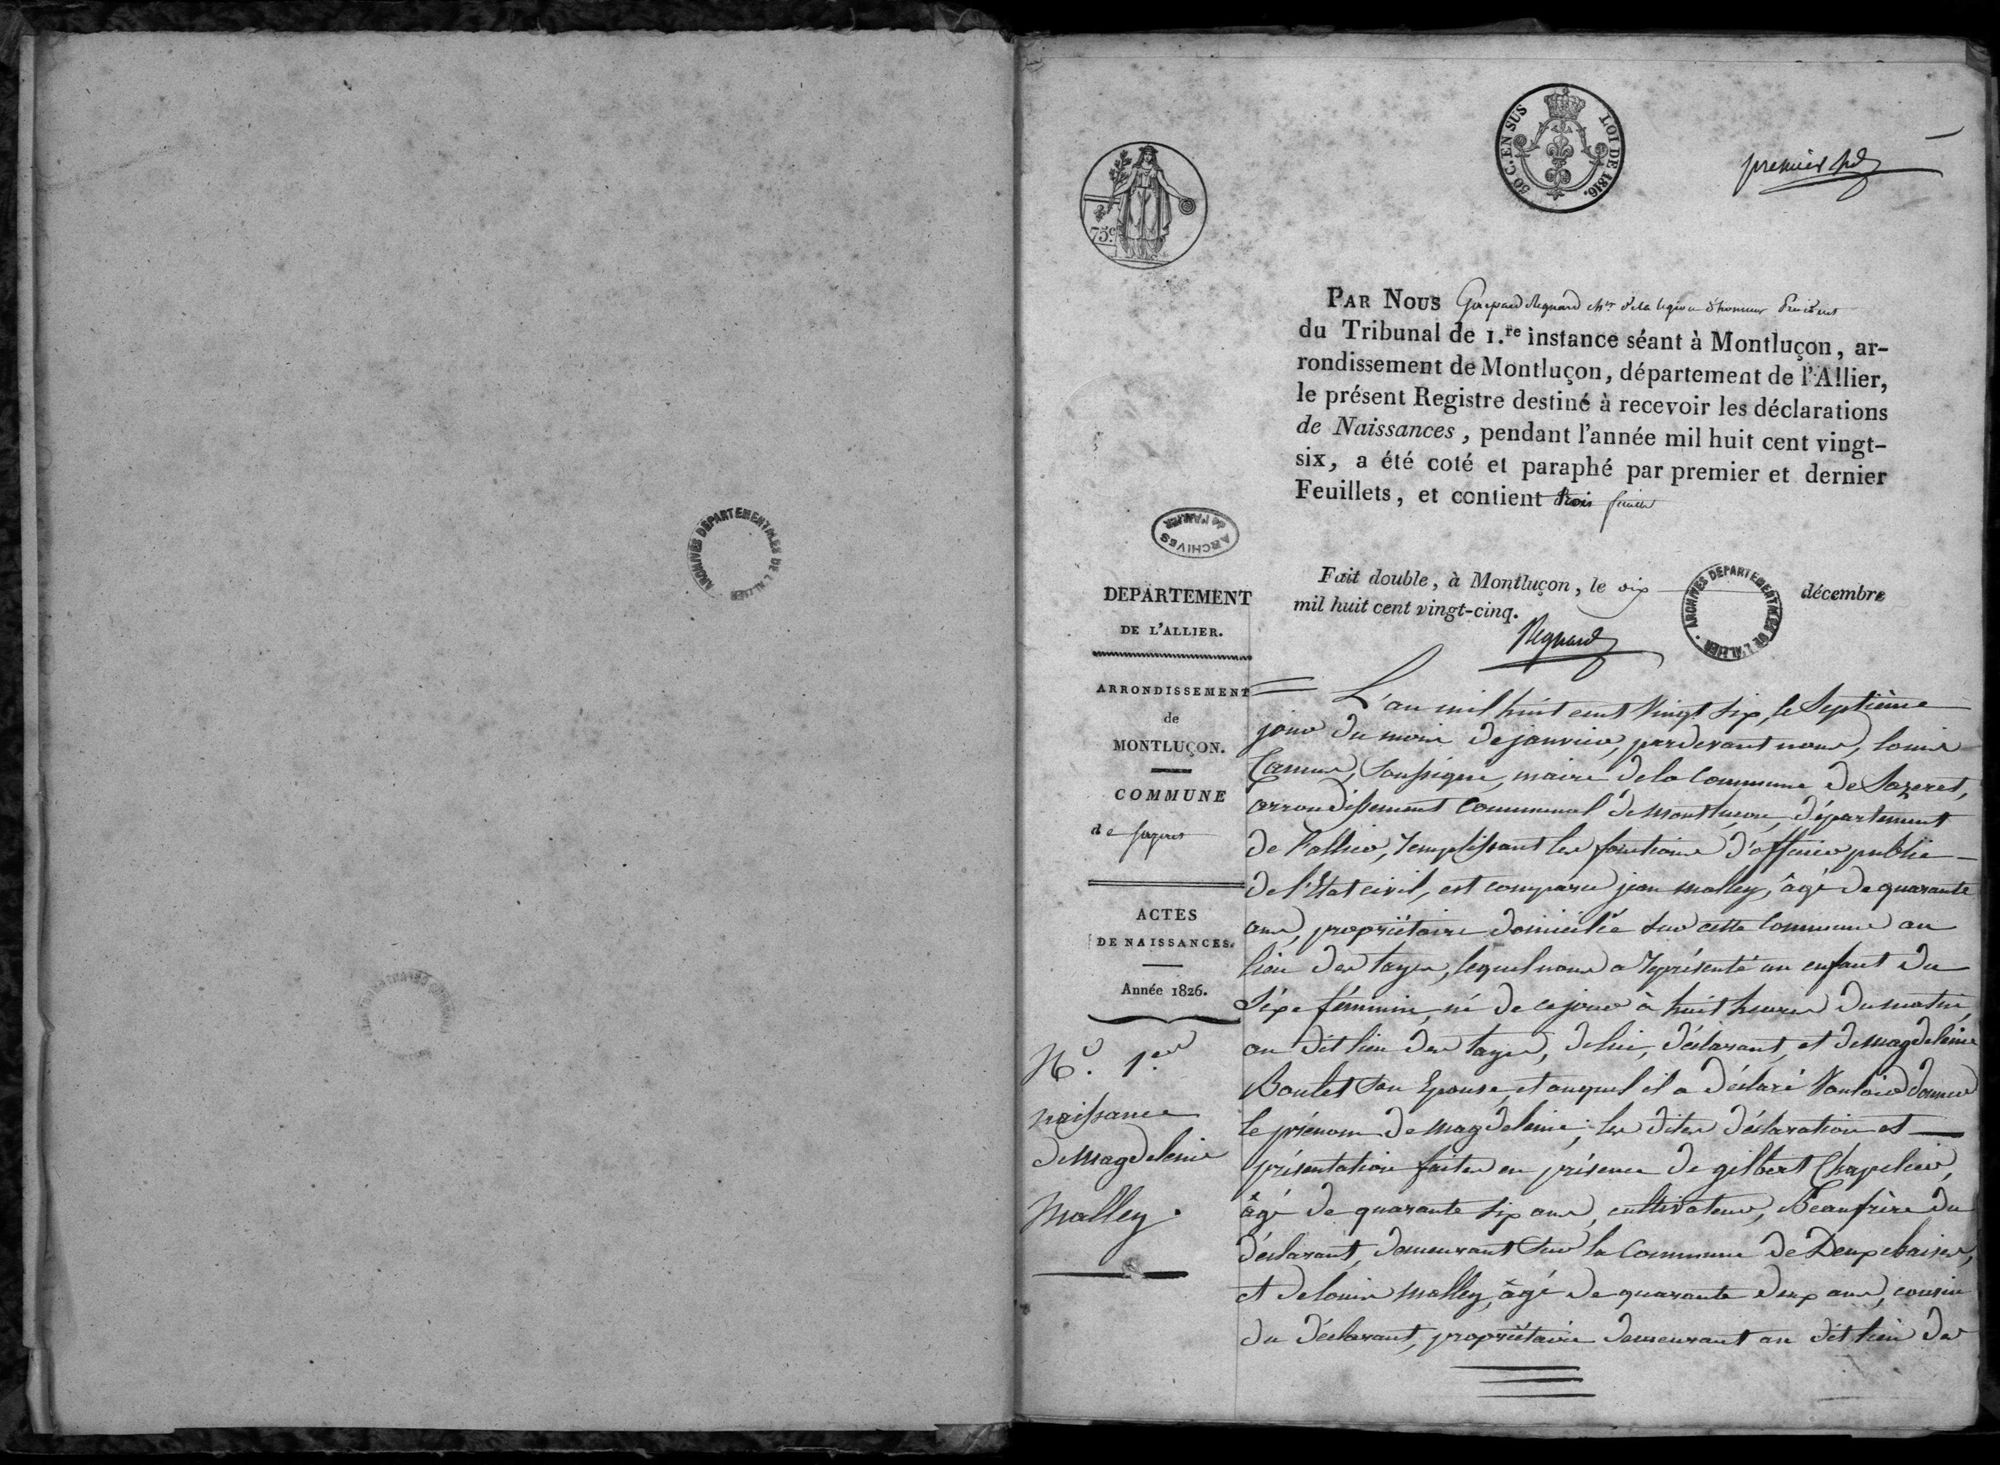 ARCHIVES DÉPARTEMENTALES DE L'ALLIER
75c.
50 C. EN SUS LOI DE 1816.
premier
PAR NOUS Gaspard Regnard Chr. de la légion d'honneur Président
du Tribunal de 1.re instance séant à Montluçon, ar-
rondissement de Montluçon, département de l'Allier,
le présent Registre destiné à recevoir les déclarations
de Naissances, pendant l'année mil huit cent vingt-
six, a été coté et paraphé par premier et dernier
Feuillets, et contient trois feuilles
Fait double, à Montluçon, le dix décembre
mil huit cent vingt-cinq.
Regnard
ARCHIVES DÉPARTEMENTALES DE L'ALLIER
ARCHIVES de l'ALLIER
DEPARTEMENT
DE L'ALLIER.
ARRONDISSEMENT
de
MONTLUÇON.
COMMUNE
de Sazeret
ACTES
DE NAISSANCES.
Année 1826.
N.o 1.er
naissance
de magdeleine
Malley.
L'an mil huit cent Vingt Six, le Septième
jour du mois de janvier, pardevant nous, louis
Camus, Soussigné, maire de la Commune de Sazeret,
arrondissement Communal de montluçon, département
de l'allier, remplissant les fonctions d'officier public
de l'Etat civil, est comparu jean malley, âgé de quarante
ans, propriétaire domicilié sur cette Commune au
lieu des tayes, lequel nous a représenté un enfant du
Séxe féminin, né de ce jour à huit heures du matin,
au dit lieu des tayes, de lui, déclarant, et de magdeleine
Boulet Son Epouse, et auquel il a déclaré Vouloir donner
le prénom de magdeleine; les dites déclaration et
présentation faites en présence de gilbert Chapelier,
âgé de quarante six ans, cultivateur, Beaufrère du
déclarant, demeurant Sur la Commune de Deuxchaises,
et de louis malley, âgé de quarante deux ans, cousin
du déclarant, propriétaire demeurant au dit lieu des